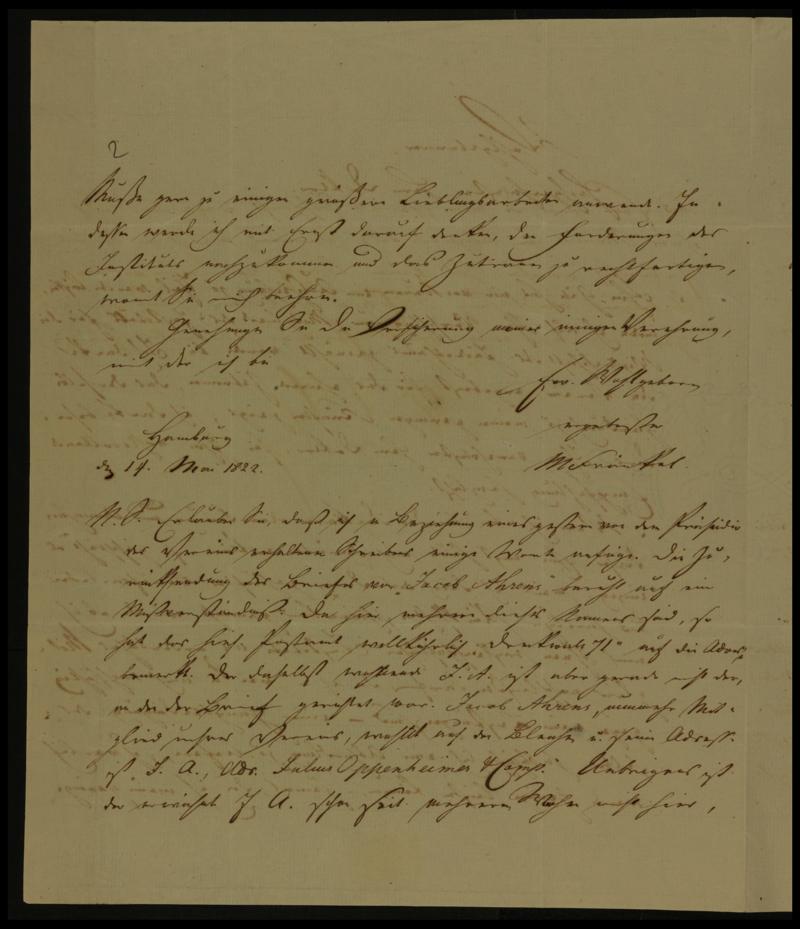 2
Muße gern zu einigen größern Lieblingsarbeiten anwende. In-
dessen werde ich mit Ernst darauf denken, den Forderungen des
Instituts nachzukommen und das Zutrauen zu rechtfertigen,
womit Sie mich beehren.
Genehmigen Sie die Versicherung meiner innigen Verehrung,
mit der ich bin
Ew. Wohlgeboren
ergebenster
MFränkel.
Hamburg
den 14. Mai 1822.
N. S. Erlauben Sie, daß ich in Beziehung eines gestern von dem Präsidio
des Vereins erhaltenen Schreibens einige Worte anfüge. Die Zu-
rücksendung des Briefes von „Jacob Ahrens" beruht auf ein
Mißverständniß. Da hier mehrere dieses Namens sind, so
hat das hies. Postamt willkührlich auf die Adresse
bemerkt. Der daselbst wohnende J. A. ist aber gerade nicht der,
an den der Brief gerichtet war. Jacob Ahrens, nunmehr Mit-
glied unsres Vereins, wohnt auf der Bleichen u. seine Adresse
ist J. A., Adr. Julius Oppenheimer & Comp. Uebrigens ist
der erwähnte J. A. schon seit mehreren Wochen nicht hier,